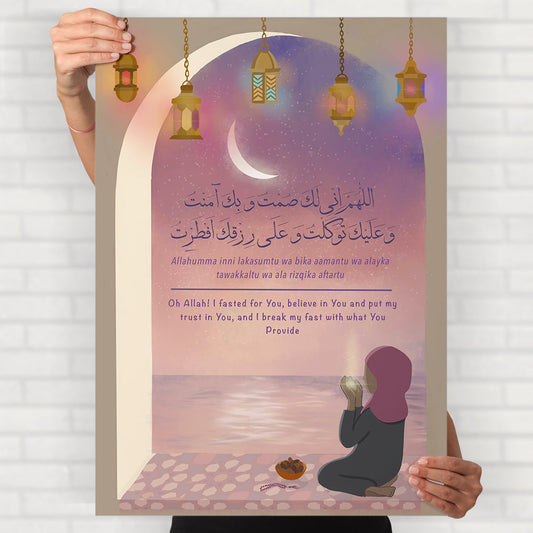 اللهم اني لك صمت و بك آمنت
و عليك توكلت و على رزقك افطرت
Allahumma inni lakasumtu wa bika aamantu wa alayka
tawakkaltu wa ala rizqika aftartu
Oh Allah! I fasted for You, believe in You and put my
trust in You, and I break my fast with what You
Provide